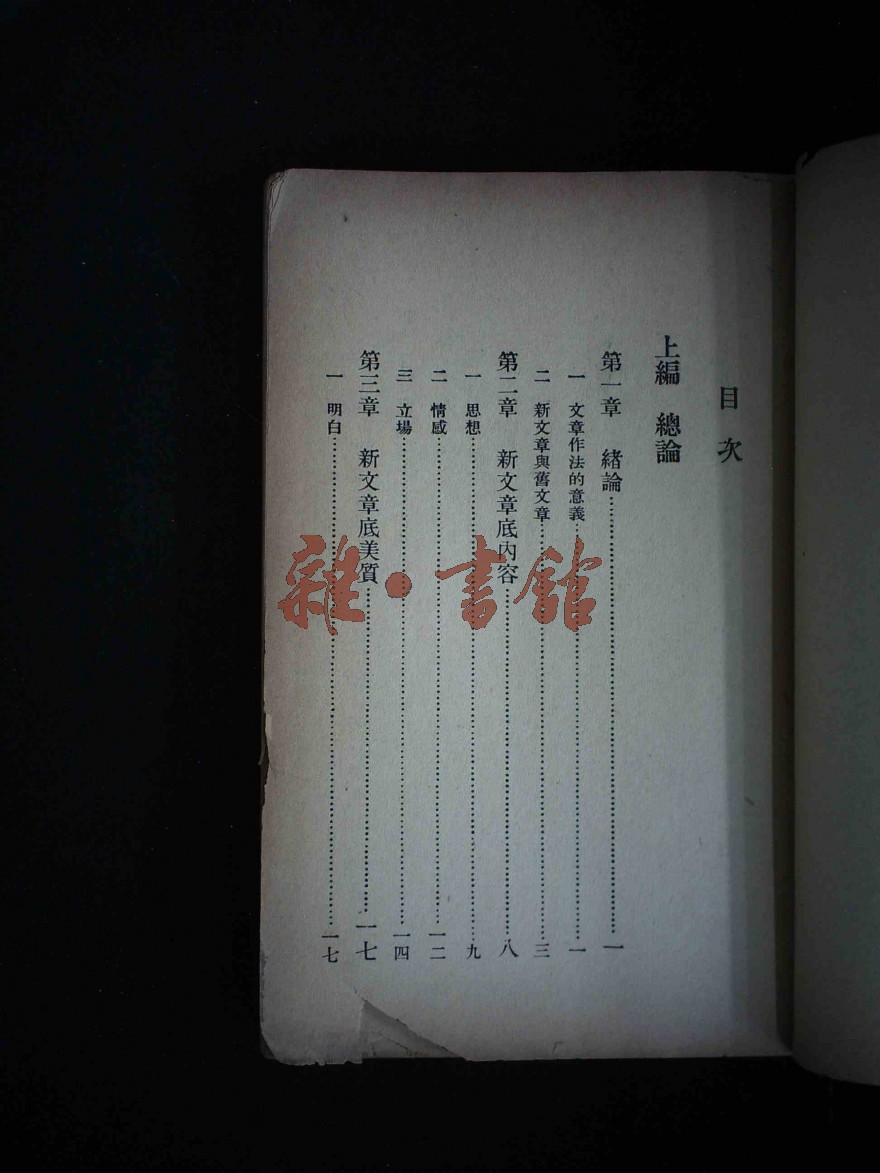 目次
上編 總論
第一章 緒論……一
一 文章作法的意義……一
二 新文章與舊文章……三
第二章 新文章底內容……八
一 思想……九
二 情感……一二
三 立場……一四
第三章 新文章底美質……一七
一 明白……一七
雜·書館